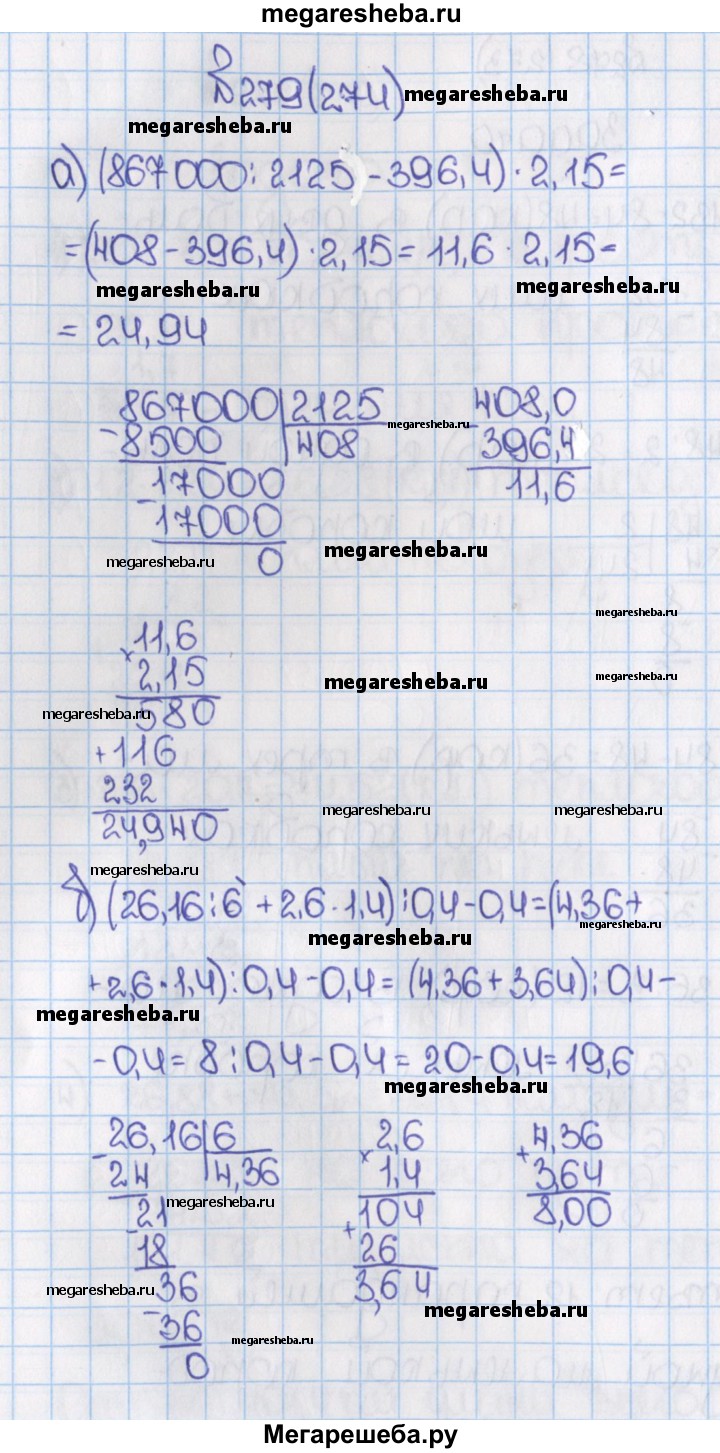 megaresheba.ru
№279(274) megaresheba.ru
megaresheba.ru
а) (867000:2125-396,4)·2,15=
=(408-396,4)·2,15=11,6·2,15=
megaresheba.ru megaresheba.ru
=24,94
867000 2125 408,0
-8500 408 megaresheba.ru -396,4
17000 11,6
-17000
megaresheba.ru 0 megaresheba.ru
megaresheba.ru
11,6
×2,15 megaresheba.ru megaresheba.ru
megaresheba.ru 580
+116
232 megaresheba.ru megaresheba.ru
24,940
megaresheba.ru
б) (26,16:6+2,6·1,4):0,4-0,4=(4,36+
megaresheba.ru megaresheba.ru
+2,6·1,4):0,4-0,4=(4,36+3,64):0,4-
megaresheba.ru
-0,4=8:0,4-0,4=20-0,4=19,6
megaresheba.ru
-26,16 6 ×2,6 +4,36
24 4,36 1,4 3,64
megaresheba.ru
-21 104 8,00
18 +26
megaresheba.ru 36 3,64
megaresheba.ru
-36 megaresheba.ru
0
Мегарешеба.ру